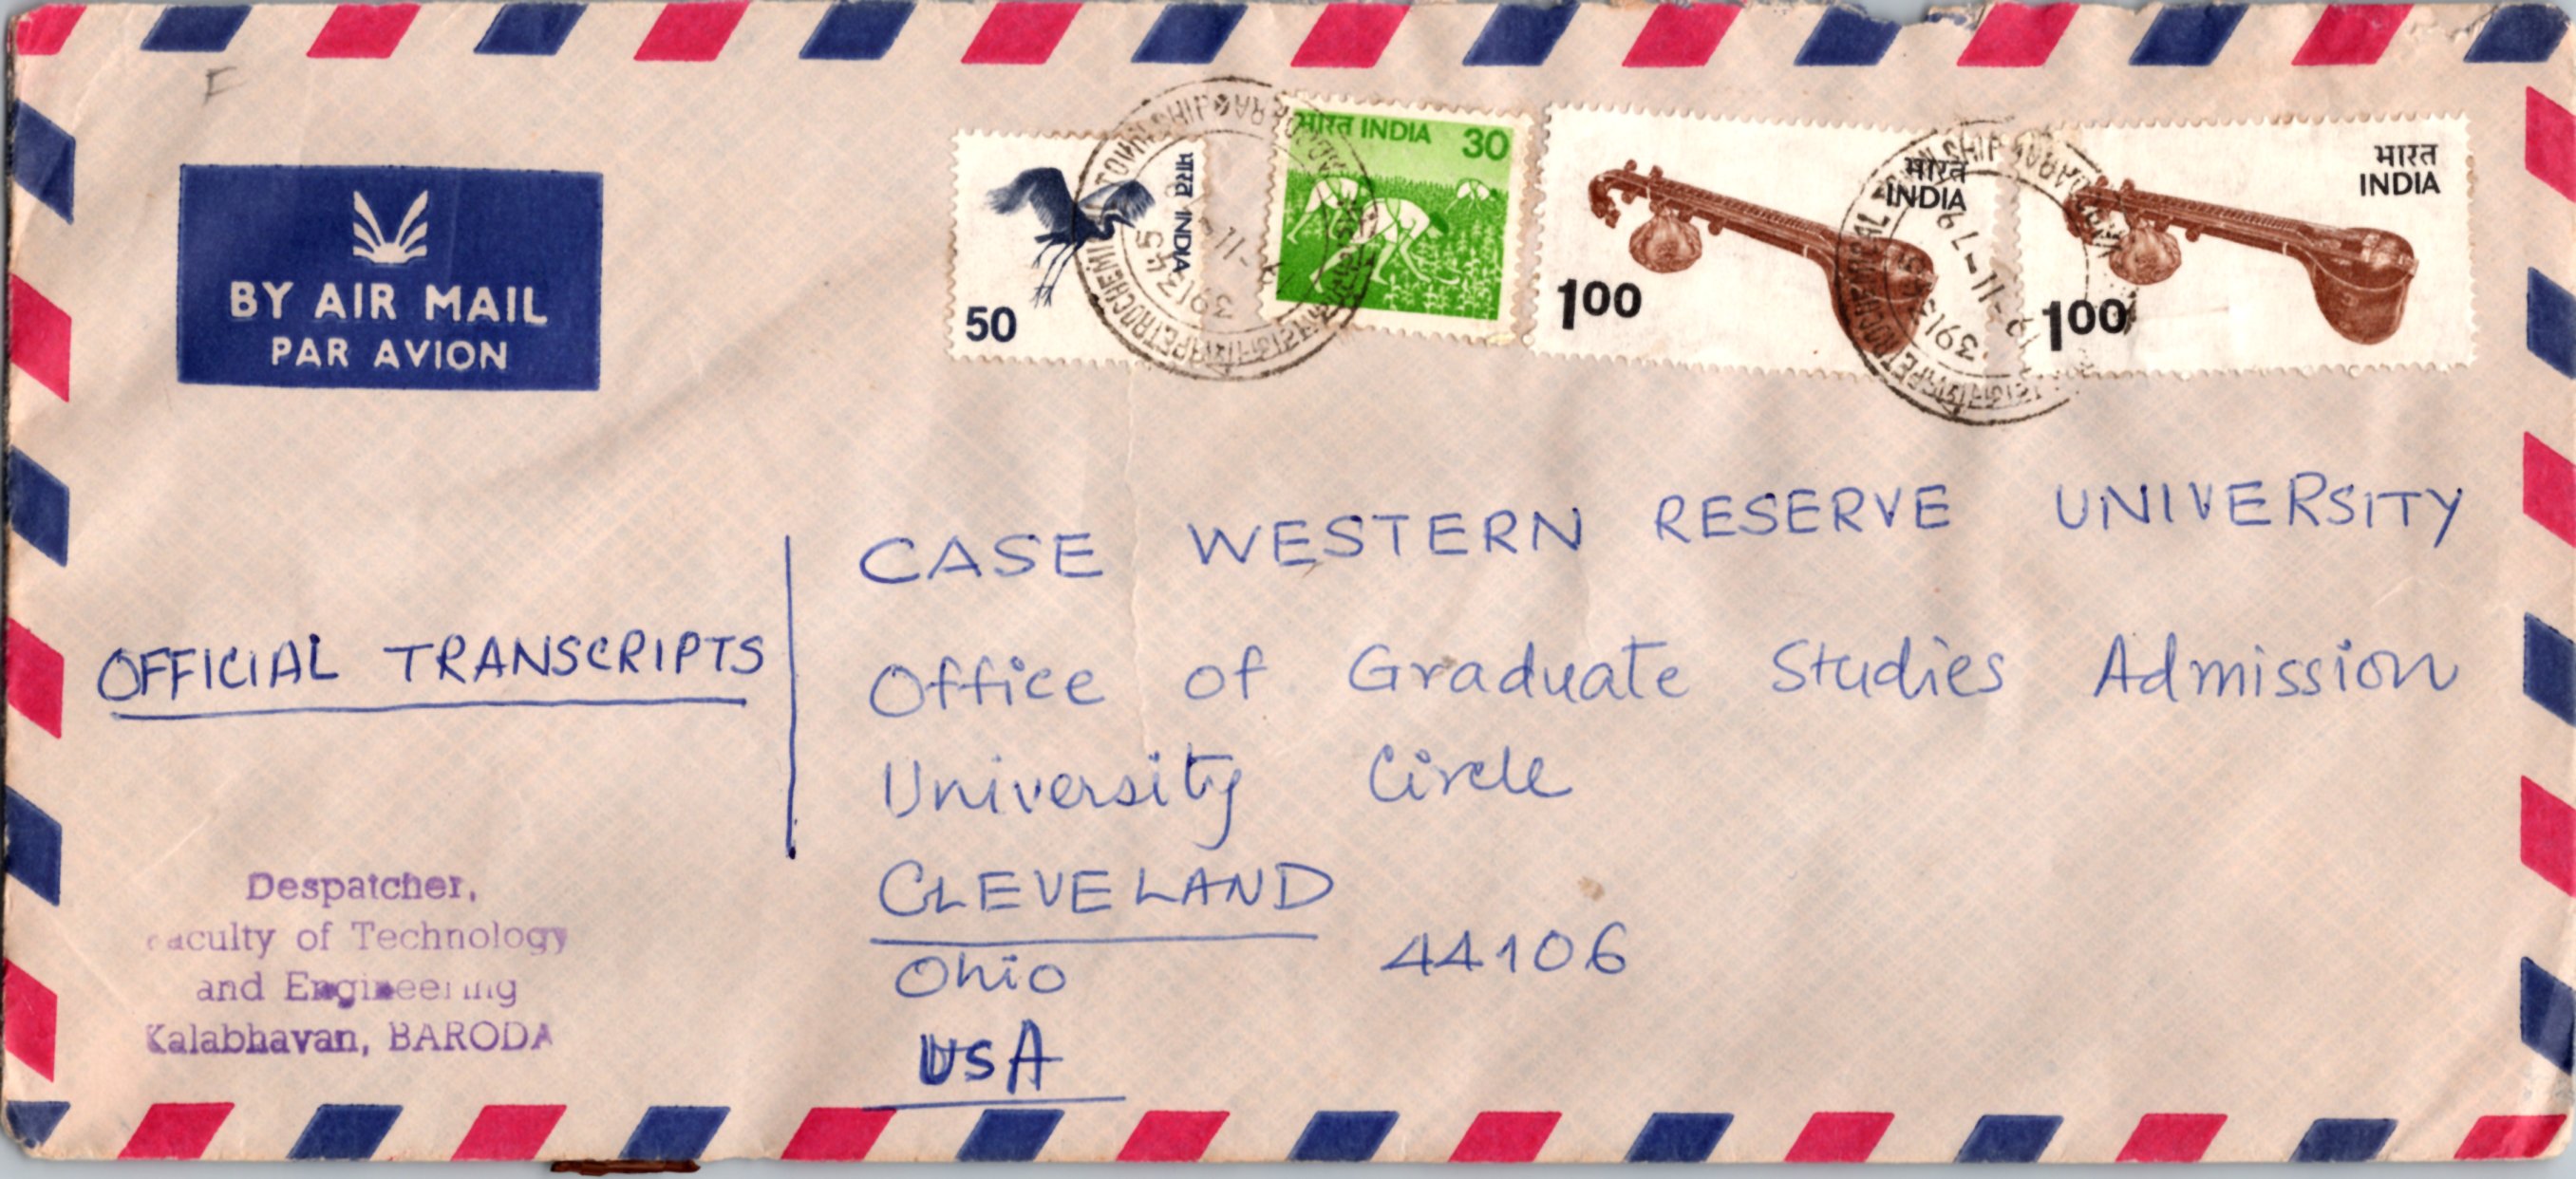 F
BY AIR MAIL
PAR AVION
भारत INDIA
50
भारत INDIA 30
भारत
INDIA
100
भारत
INDIA
100
PETROCHEMICAL TOWNSHIP
391345
CASE WESTERN RESERVE UNIVERSITY
OFFICIAL TRANSCRIPTS
Office of Graduate Studies Admission
University Circle
CLEVELAND
Ohio 44106
USA
Despatcher,
Faculty of Technology
and Engineering
Kalabhavan, BARODA